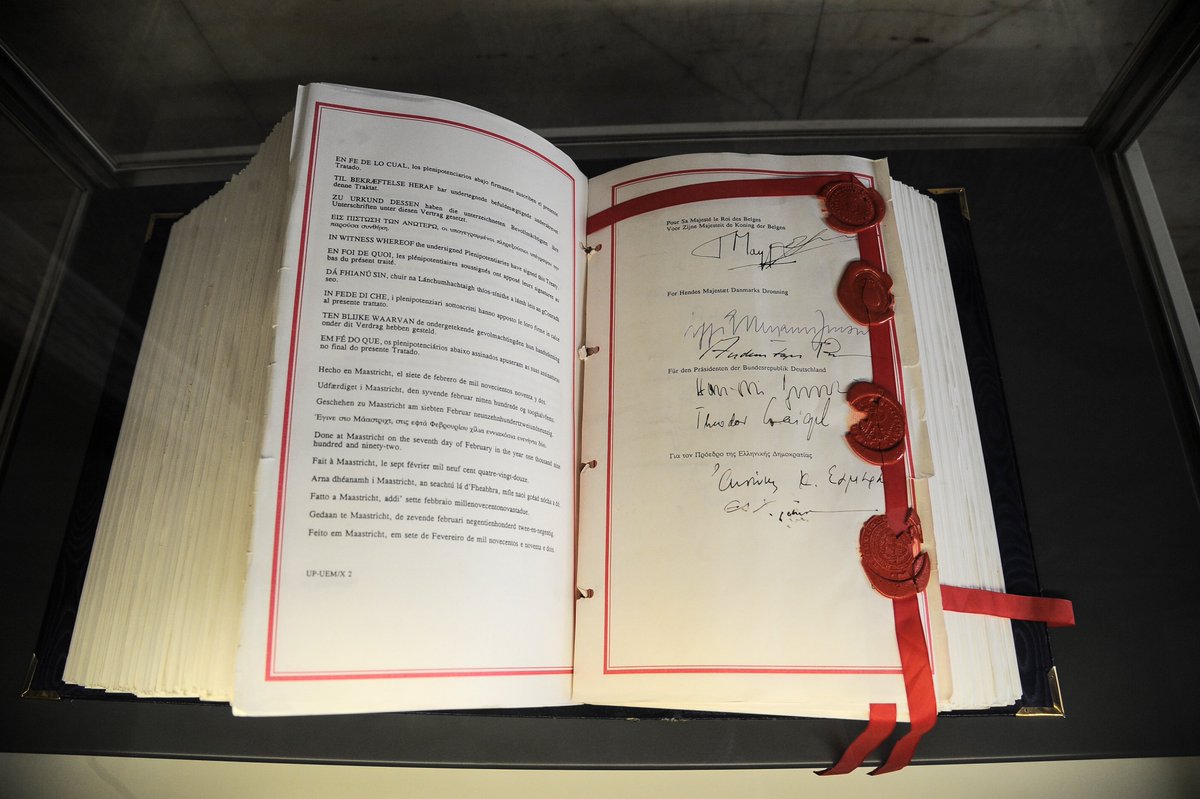 EN FE DE LO CUAL, los plenipotenciarios abajo firmantes suscriben el presente
Tratado.
TIL BEKRÆFTELSE HERAF har undertegnede befuldmægtigede underskrevet
denne Traktat.
ZU URKUND DESSEN haben die unterzeichneten Bevollmächtigten ihre
Unterschriften unter diesen Vertrag gesetzt.
ΕΙΣ ΠΙΣΤΩΣΗ ΤΩΝ ΑΝΩΤΕΡΩ, οι υπογεγραμμένοι πληρεξούσιοι υπέγραψαν την
παρούσα συνθήκη.
IN WITNESS WHEREOF the undersigned Plenipotentiaries have signed this Treaty.
EN FOI DE QUOI, les plénipotentiaires soussignés ont apposé leurs signatures au
bas du présent traité.
DÁ FHIANÚ SIN, chuir na Lánchumhachtaigh thíos-sínithe a lámh leis an gConradh
seo.
IN FEDE DI CHE, i plenipotenziari sottoscritti hanno apposto le loro firme in calce
al presente trattato.
TEN BLIJKE WAARVAN de ondergetekende gevolmachtigden hun handtekening
onder dit Verdrag hebben gesteld.
EM FÉ DO QUE, os plenipotenciários abaixo assinados apuseram as suas assinaturas
no final do presente Tratado.
Hecho en Maastricht, el siete de febrero de mil novecientos noventa y dos.
Udfærdiget i Maastricht, den syvende februar nitten hundrede og tooghalvfems.
Geschehen zu Maastricht am siebten Februar neunzehnhundertzweiundneunzig.
Έγινε στο Μάαστριχτ, στις εφτά Φεβρουαρίου χίλια εννιακόσια ενενήντα δύο.
Done at Maastricht on the seventh day of February in the year one thousand nine
hundred and ninety-two.
Fait à Maastricht, le sept février mil neuf cent quatre-vingt-douze.
Arna dhéanamh i Maastricht, an seachtú lá d'Fheabhra, míle naoi gcéad nócha a dó.
Fatto a Maastricht, addi' sette febbraio millenovecentonovantadue.
Gedaan te Maastricht, de zevende februari negentienhonderd twee-en-negentig.
Feito em Maastricht, em sete de Fevereiro de mil novecentos e noventa e dois.
UP-UEM/X 2
Pour Sa Majesté le Roi des Belges
Voor Zijne Majesteit de Koning der Belgen
For Hendes Majestæt Danmarks Dronning
Für den Präsidenten der Bundesrepublik Deutschland
Theodor Waigel
Για τον Πρόεδρο της Ελληνικής Δημοκρατίας